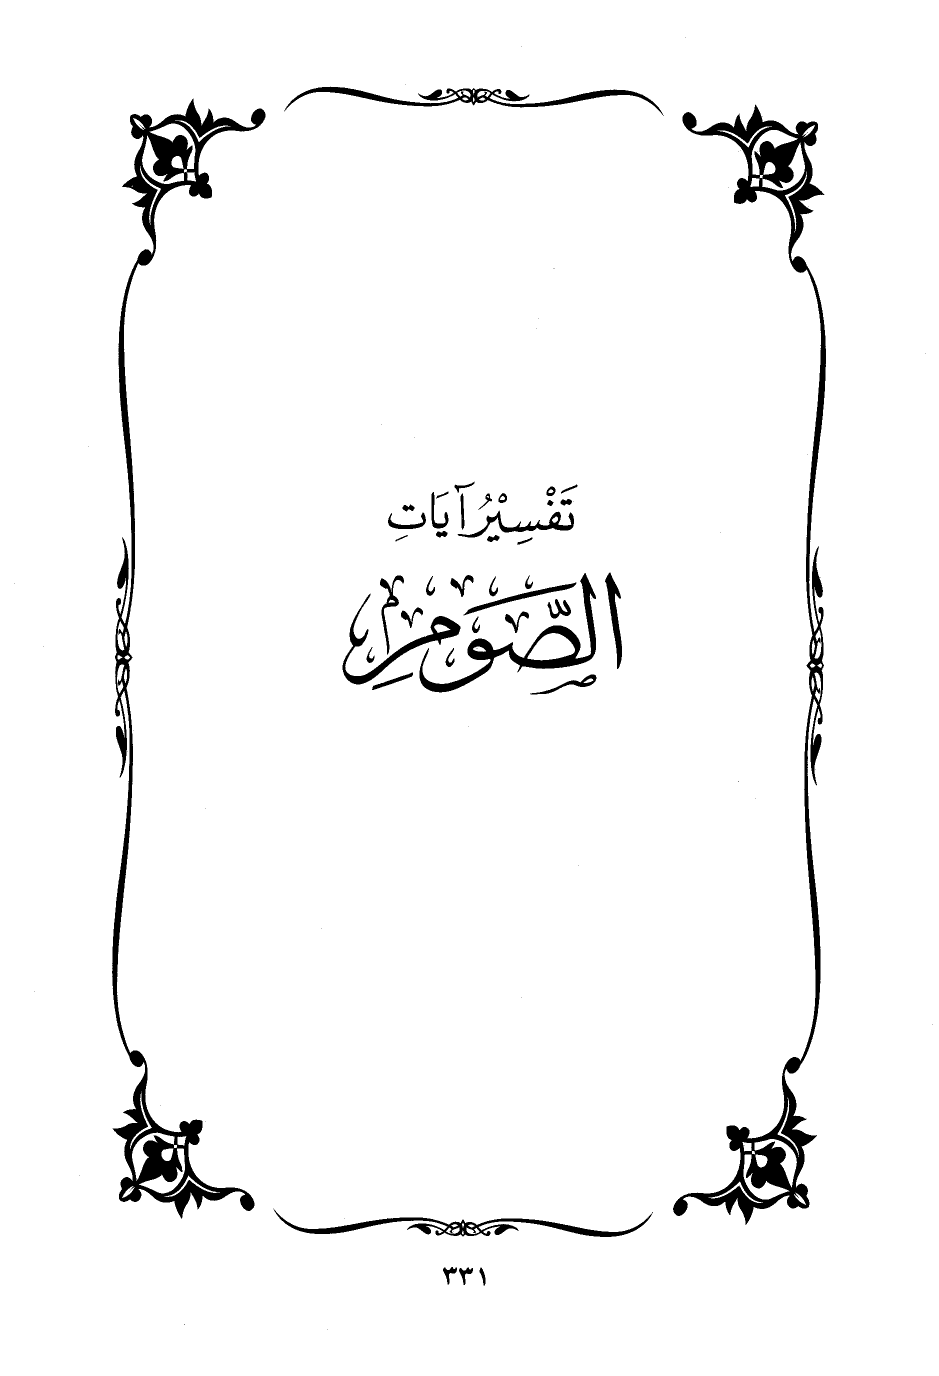 تَفْسِيْرُ آيَاتِ
الصَّوْمِ
٣٣١